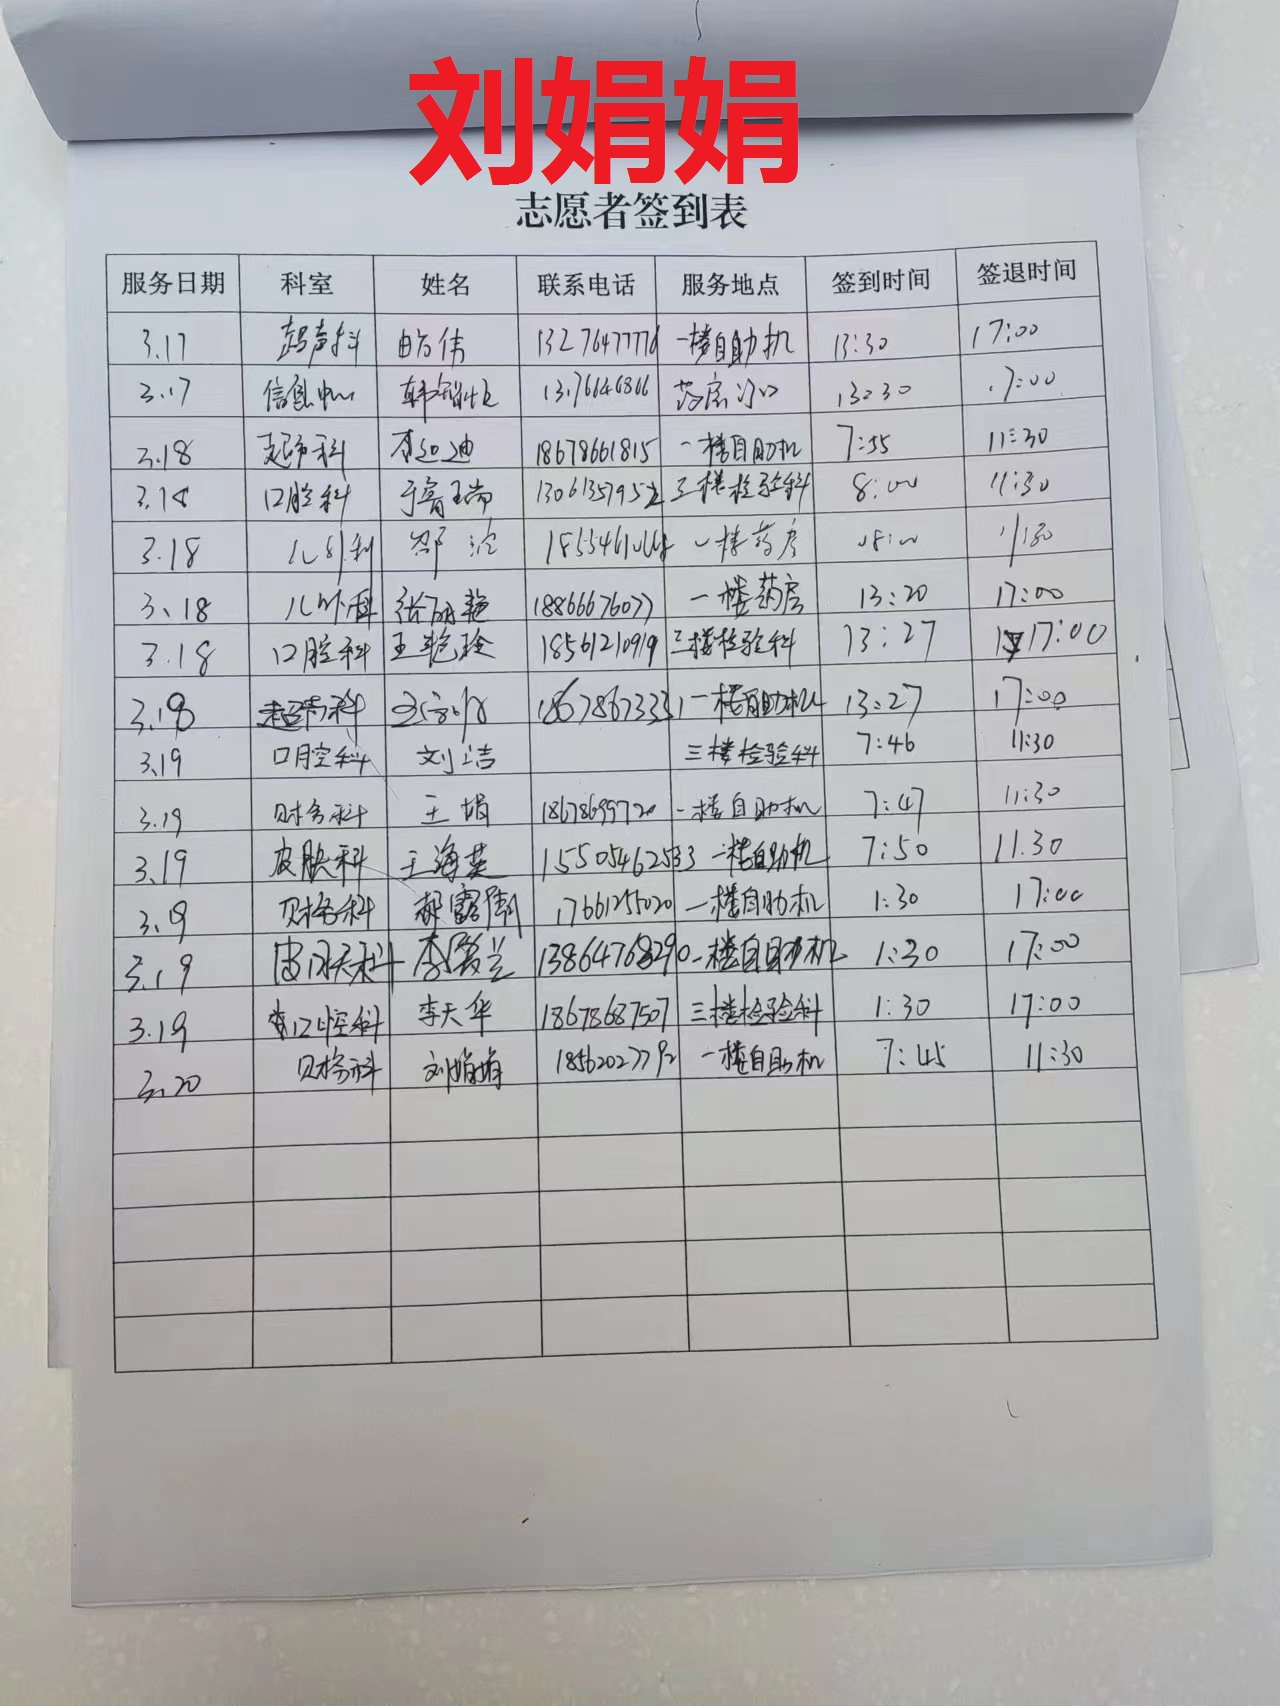 刘娟娟
志愿者签到表
服务日期 科室 姓名 联系电话 服务地点 签到时间 签退时间
3.17 超声科 伟 13276477776 一楼自助机 13:30 17:00
3.17 信息中心 韩 药房门口 13:30 17:00
3.18 超声科 李迎迪 18678661815 一楼自助机 7:55 11:30
3.18 口腔科 于晋瑞 三楼检验科 8:00 11:30
3.18 儿外科 邹波 一楼药房 08:00 11:30
3.18 儿外科 张丽艳 18866676077 一楼药房 13:20 17:00
3.18 口腔科 王艳玲 18561210919 三楼检验科 13:27 17:00
3.18 超声科 18678673331 一楼自助机 13:27 17:00
3.19 口腔科 刘洁 三楼检验科 7:46 11:30
3.19 财务科 王娟 18678699720 一楼自助机 7:47 11:30
3.19 皮肤科 王海英 15505462533 一楼自助机 7:50 11.30
3.19 财务科 郝露 17661255020 一楼自助机 1:30 17:00
3.19 皮肤科 李爱兰 13864768290 一楼自助机 1:30 17:00
3.19 口腔科 李天华 18678687507 三楼检验科 1:30 17:00
3.20 财务科 刘娟娟 18562027792 一楼自助机 7:45 11:30